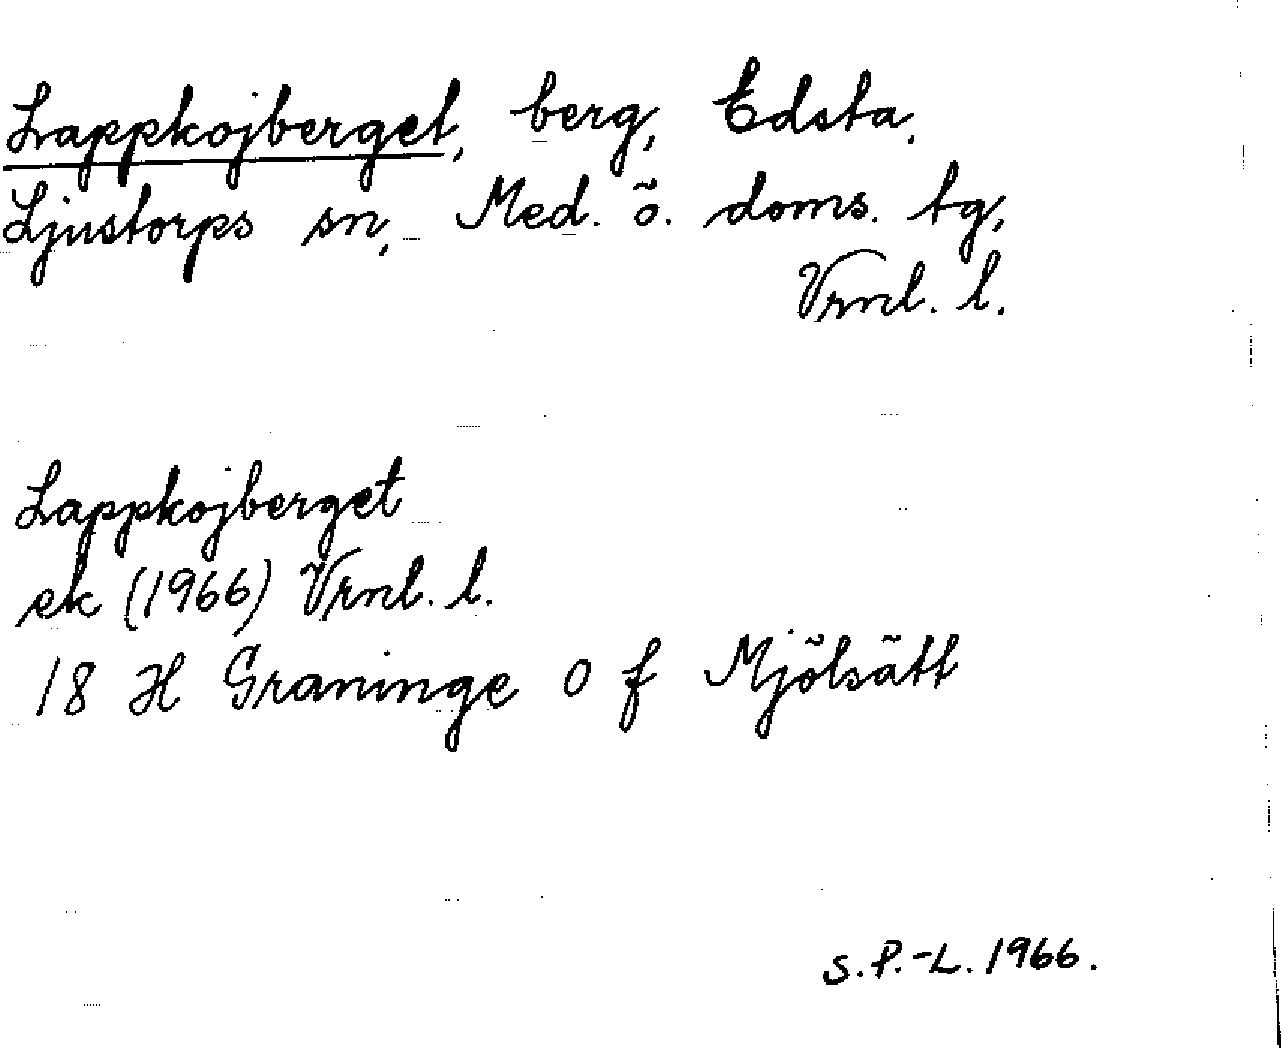 Lappkojberget, berg, Edsta,
Ljustorps sn, Med. ö. doms. tg,
Vrnl. l.
Lappkojberget
ek (1966) Vrnl. l.
18 H Graninge O f Mjölsätt
S.P.-L. 1966.